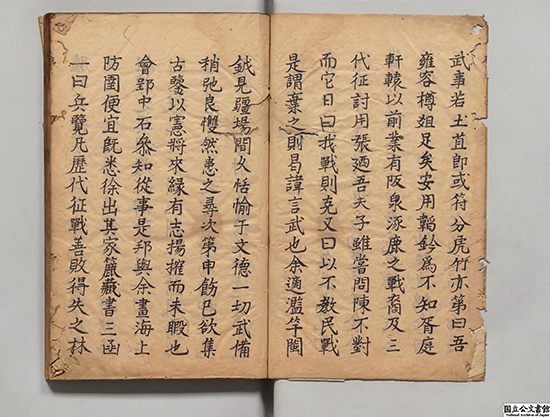 武事若土苴即或符分虎竹亦第曰吾
雍容樽俎足矣安用韜鈐為不知胥庭
軒轅以前業有阪泉涿鹿之戰裔及三
代征討用張廼吾夫子雖嘗問陳不對
而它日曰我戰則克又曰以不教民戰
是謂棄之則曷諱言武也余適濫竽閩
鉞見疆場間久恬愉于文德一切武備
稍弛良戄然患之尋次第申飭已欲集
古鑒以憲將來緣有志揚搉而未暇也
會郢中石叅知從事是邦與余畫海上
防圉便宜既悉徐出其家簏藏書三函
一曰兵覽凡歷代征戰善敗得失之林
国立公文書館
National Archives of Japan